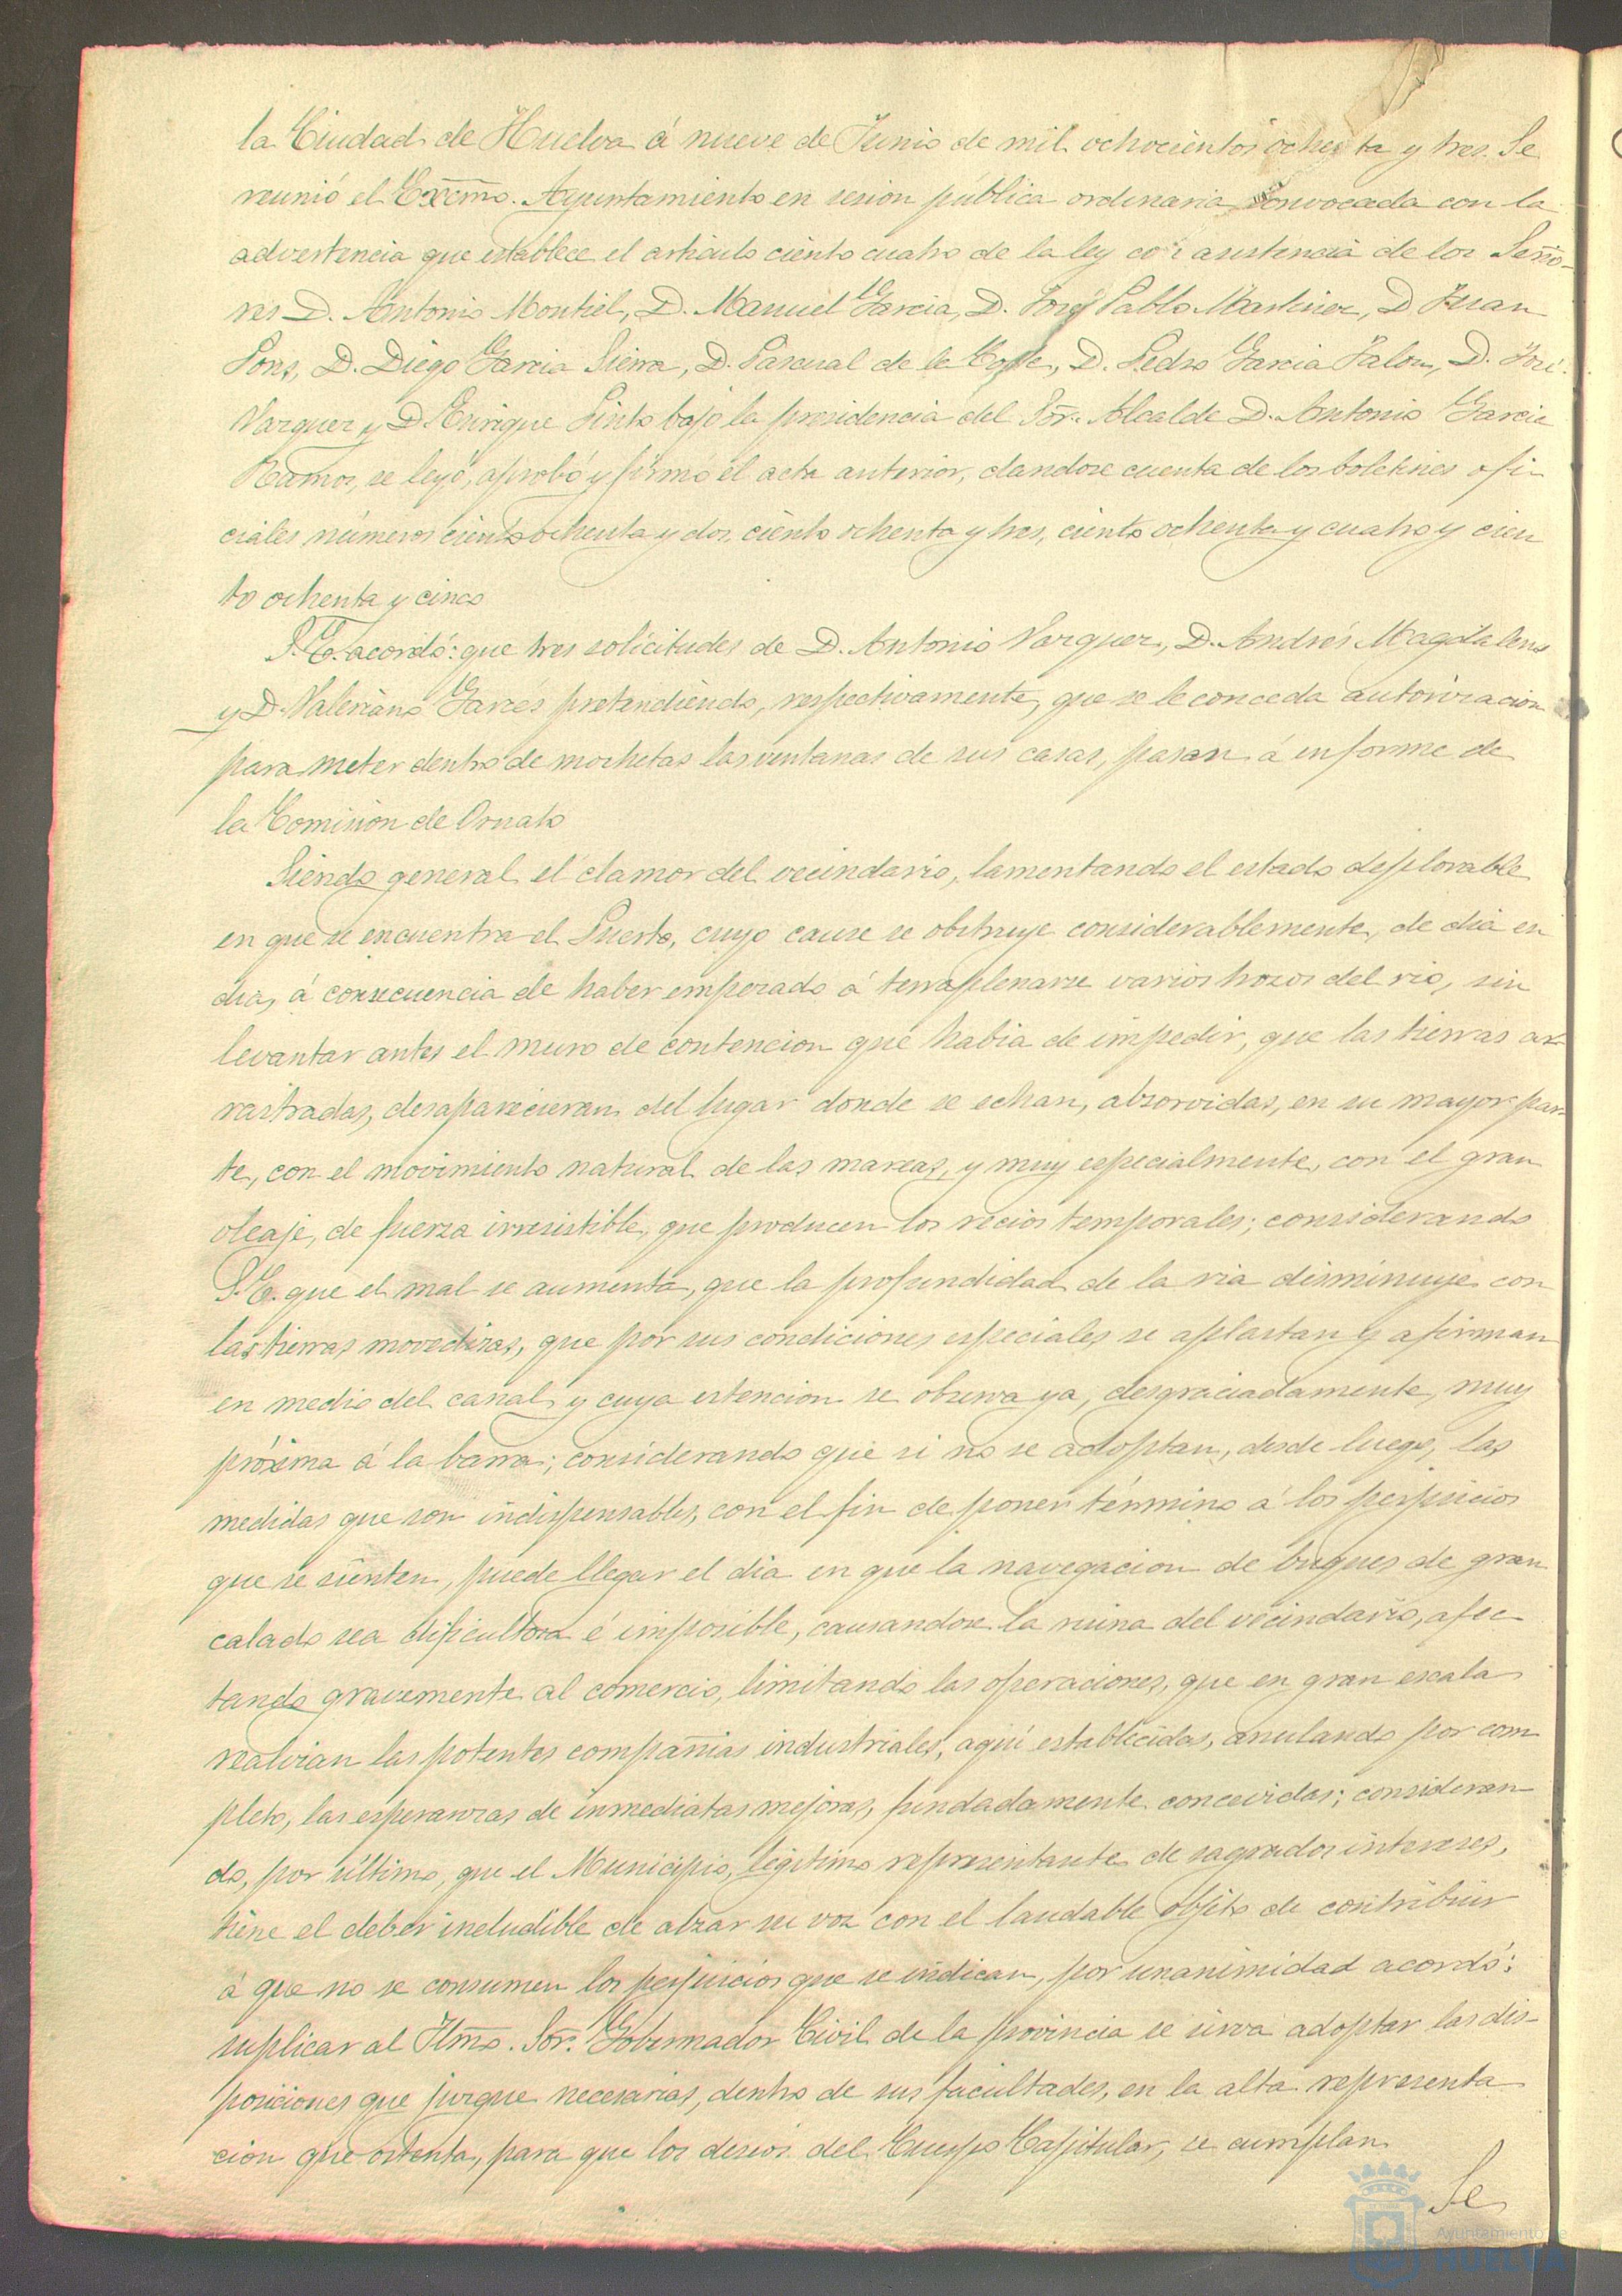 la Ciudad de Huelva á nueve de Junio de mil ochocientos ochenta y tres. Se
reunió el Excmo. Ayuntamiento en sesion pública ordinaria convocada con la
advertencia que establece el articulo ciento cuatro de la ley con asistencia de los Seño-
res D. Antonio Montiel, D. Manuel Garcia, D. José Pablo Martinez, D Juan
Pons, D. Diego Garcia Sierra, D. Pascual de la Corte, D. Pedro Garcia Jalon, D. José
Vazquez y D. Enrique Pinto bajo la presidencia del Sor. Alcalde D. Antonio Garcia
Ramos, se leyó, aprobó y firmó el acta anterior, dandose cuenta de los boletines ofi
ciales números ciento ochenta y dos, ciento ochenta y tres, ciento ochenta y cuatro y cien
to ochenta y cinco
S. E. acordó: que tres solicitudes de D. Antonio Vazquez, D. Andrés Magdaleno
y D. Valeriano Garcés pretendiendo, respectivamente, que se le conceda autorizacion
para meter dentro de mochetas las ventanas de sus casas, pasan á informe de
la Comision de Ornato
Siendo general el clamor del vecindario, lamentando el estado deplorable
en que se encuentra el Puerto, cuyo cauce se obstruye considerablemente, de dia en
dia, á consecuencia de haber empezado á terraplenarse varios trozos del rio, sin
levantar antes el muro de contencion que habia de impedir, que las tierras ar-
rastradas, desaparecieran del lugar donde se echan, absorvidas, en su mayor par-
te, con el movimiento natural de las mareas, y muy especialmente, con el gran
oleaje, de fuerza irresistible, que producen los recios temporales; considerando
S. E. que el mal se aumenta, que la profundidad de la ria disminuye con
las tierras movedizas, que por sus condiciones especiales, se aplastan y afirman
en medio del canal y cuya estencion se observa ya, desgraciadamente, muy
próxima á la barra; considerando que si no se adoptan, desde luego, las
medidas que son indispensables, con el fin de poner término á los perjuicios
que se sienten, puede llegar el dia en que la navegacion de buques de gran
calado sea dificultosa é imposible, causandose la ruina del vecindario, afec
tando gravemente al comercio, limitando las operaciones, que en gran escala
realizan las potentes compañias industriales, aquí establecidas, anulando por com
pleto, las esperanzas de inmediatas mejoras, fundadamente concevidas; consideran-
do, por último, que el Municipio, legitimo representante de sagrados intereses,
tiene el deber ineludible de alzar su voz con el laudable objeto de contribuir
á que no se consumen los perjuicios que se indican, por unanimidad acordó:
suplicar al Iltmo. Sor. Gobernador Civil de la provincia se sirva adoptar las dis-
posiciones que juzgue necesarias, dentro de sus facultades, en la alta representa
cion que ostenta, para que los deseos del Cuerpo Capitular, se cumplan.
Se
Ayuntamiento de
HUELVA